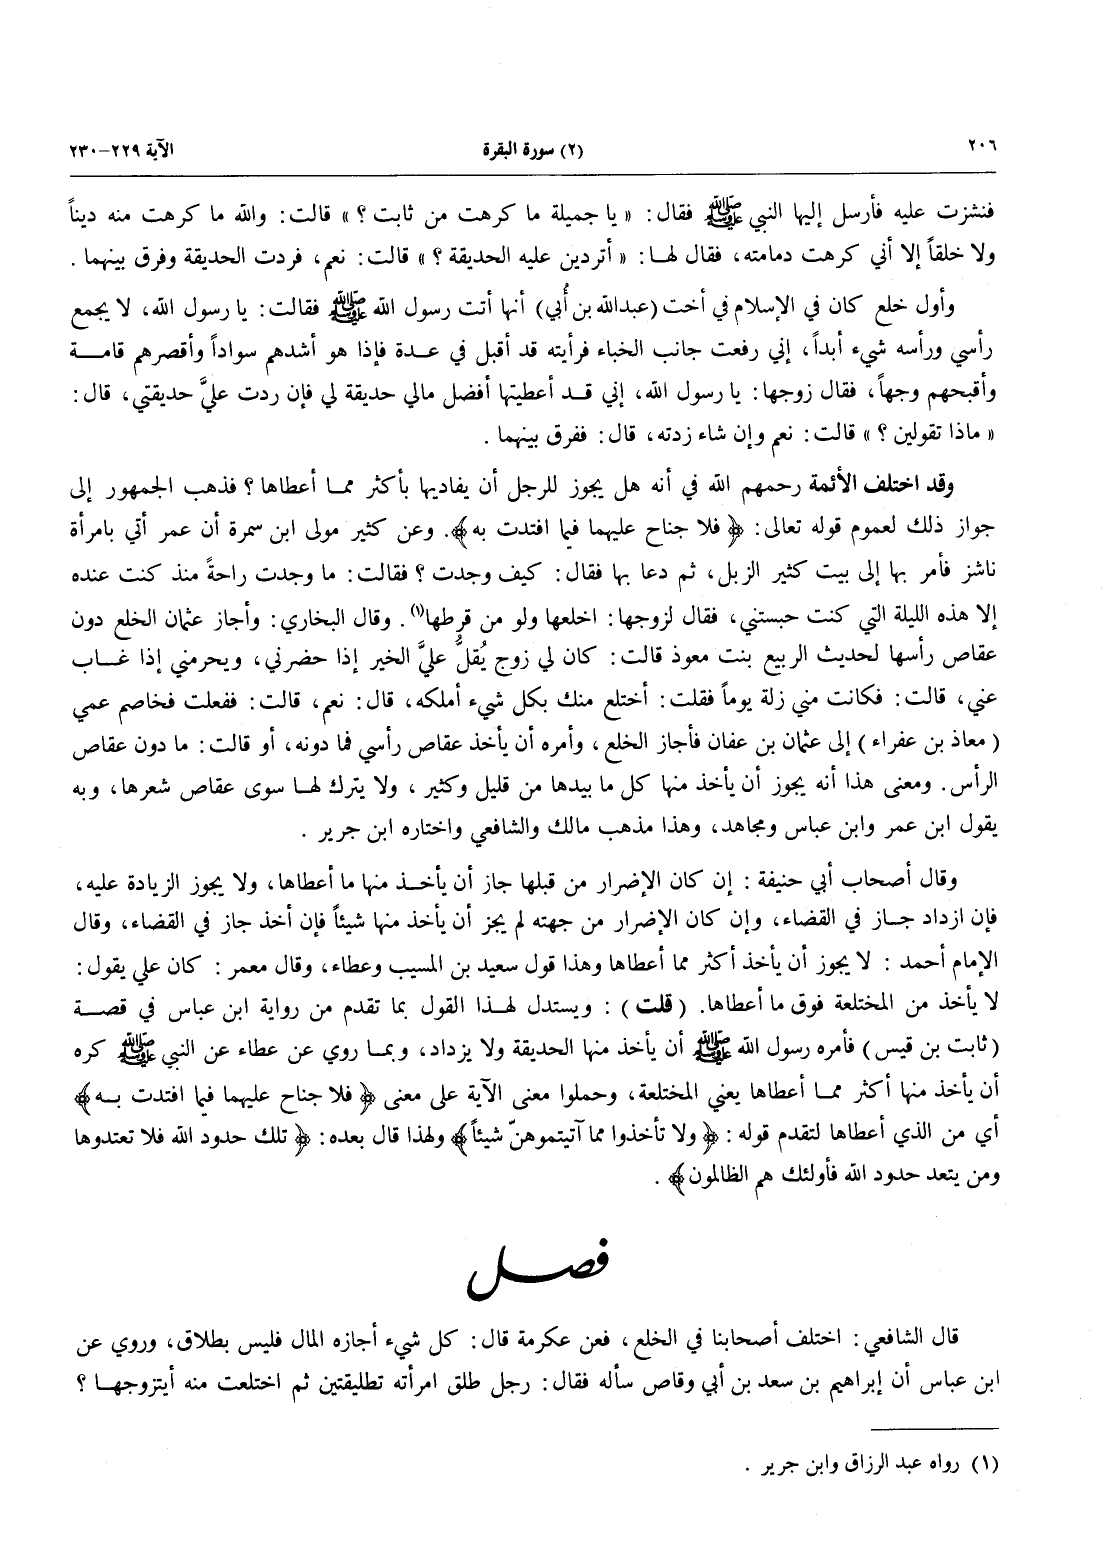 ٢٠٦
(٢) سورة البقرة
الآية ٢٢٩-٢٣٠
فنشزت عليه فأرسل إليها النبي ﷺ فقال: « يا جميلة ما كرهت من ثابت ؟ » قالت: والله ما كرهت منه ديناً
ولا خلقاً إلا أني كرهت دمامته، فقال لها: « أتردين عليه الحديقة ؟ » قالت: نعم، فردت الحديقة وفرق بينهما .
وأول خلع كان في الإسلام في أخت (عبدالله بن أُبي) أنها أتت رسول الله ﷺ فقالت: يا رسول الله، لا يجمع
رأسي ورأسه شيء أبداً، إني رفعت جانب الخباء فرأيته قد أقبل في عدة فإذا هو أشدهم سواداً وأقصرهم قامة
وأقبحهم وجهاً، فقال زوجها: يا رسول الله، إني قد أعطيتها أفضل مالي حديقة لي فإن ردت عليَّ حديقتي، قال:
« ماذا تقولين ؟ » قالت: نعم وإن شاء زدته، قال: ففرق بينهما .
وقد اختلف الأئمة رحمهم الله في أنه هل يجوز للرجل أن يفاديها بأكثر مما أعطاها ؟ فذهب الجمهور إلى
جواز ذلك لعموم قوله تعالى: ﴿ فلا جناح عليهما فيما افتدت به ﴾. وعن كثير مولى ابن سمرة أن عمر أتي بامرأة
ناشز فأمر بها إلى بيت كثير الزبل، ثم دعا بها فقال: كيف وجدت ؟ فقالت: ما وجدت راحةً منذ كنت عنده
إلا هذه الليلة التي كنت حبستني، فقال لزوجها: اخلعها ولو من قرطها(١). وقال البخاري: وأجاز عثمان الخلع دون
عقاص رأسها لحديث الربيع بنت معوذ قالت: كان لي زوج يُقلُّ عليَّ الخير إذا حضرني، ويحرمني إذا غاب
عني، قالت: فكانت مني زلة يوماً فقلت: أختلع منك بكل شيء أملكه، قال: نعم، قالت: ففعلت فخاصم عمي
( معاذ بن عفراء ) إلى عثمان بن عفان فأجاز الخلع، وأمره أن يأخذ عقاص رأسي فما دونه، أو قالت: ما دون عقاص
الرأس. ومعنى هذا أنه يجوز أن يأخذ منها كل ما بيدها من قليل وكثير، ولا يترك لها سوى عقاص شعرها، وبه
يقول ابن عمر وابن عباس ومجاهد، وهذا مذهب مالك والشافعي واختاره ابن جرير .
وقال أصحاب أبي حنيفة : إن كان الإضرار من قبلها جاز أن يأخذ منها ما أعطاها، ولا يجوز الزيادة عليه،
فإن ازداد جاز في القضاء، وإن كان الإضرار من جهته لم يجز أن يأخذ منها شيئاً فإن أخذ جاز في القضاء، وقال
الإمام أحمد : لا يجوز أن يأخذ أكثر مما أعطاها وهذا قول سعيد بن المسيب وعطاء، وقال معمر : كان علي يقول:
لا يأخذ من المختلعة فوق ما أعطاها. ( قلت ) : ويستدل لهذا القول بما تقدم من رواية ابن عباس في قصة
(ثابت بن قيس) فأمره رسول الله ﷺ أن يأخذ منها الحديقة ولا يزداد، وبما روي عن عطاء عن النبي ﷺ كره
أن يأخذ منها أكثر مما أعطاها يعني المختلعة، وحملوا معنى الآية على معنى ﴿ فلا جناح عليهما فيما افتدت به ﴾
أي من الذي أعطاها لتقدم قوله : ﴿ ولا تأخذوا مما آتيتموهنّ شيئاً ﴾ ولهذا قال بعده: ﴿ تلك حدود الله فلا تعتدوها
ومن يتعد حدود الله فأولئك هم الظالمون ﴾ .
فصل
قال الشافعي: اختلف أصحابنا في الخلع، فعن عكرمة قال: كل شيء أجازه المال فليس بطلاق، وروي عن
ابن عباس أن إبراهيم بن سعد بن أبي وقاص سأله فقال: رجل طلق امرأته تطليقتين ثم اختلعت منه أيتزوجها ؟
(١) رواه عبد الرزاق وابن جرير .